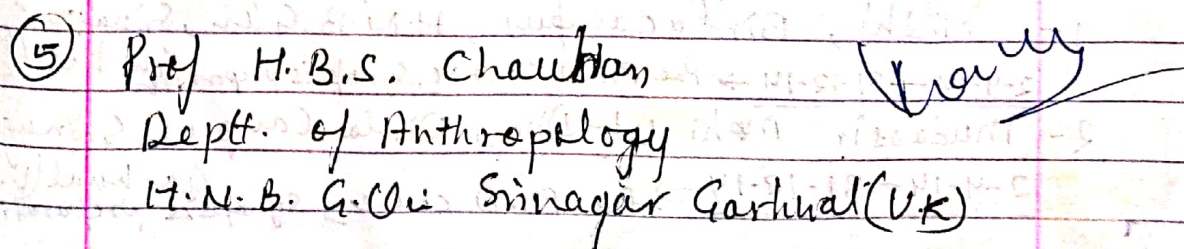 5 Prof H.B.S. Chauhan
Deptt. of Anthropology
H.N.B. G.U. Srinagar Garhwal (U.K)